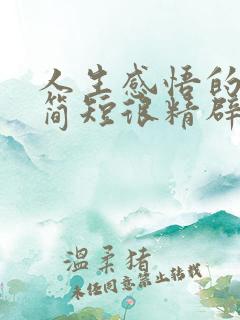 人生感悟的
简短很精辟
温柔猪
未经同意禁止转载